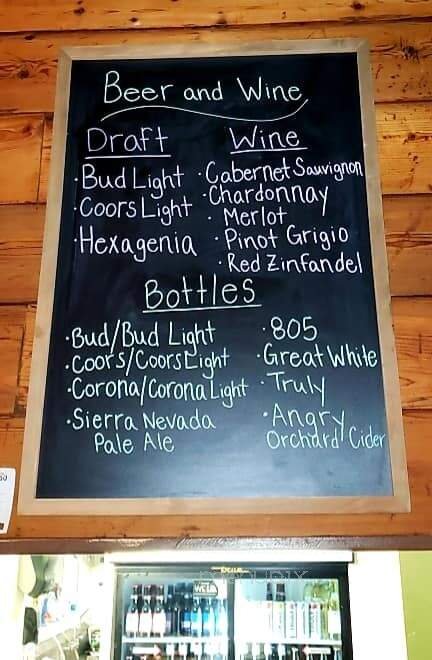 Beer and Wine
Draft
·Bud Light
·Coors Light
·Hexagenia
Wine
·Cabernet Sauvignon
·Chardonnay
·Merlot
·Pinot Grigio
·Red Zinfandel
Bottles
·Bud/Bud Light
·Coors/Coors Light
·Corona/Corona Light
·Sierra Nevada
Pale Ale
·805
·Great White
·Truly
·Angry
Orchard Cider